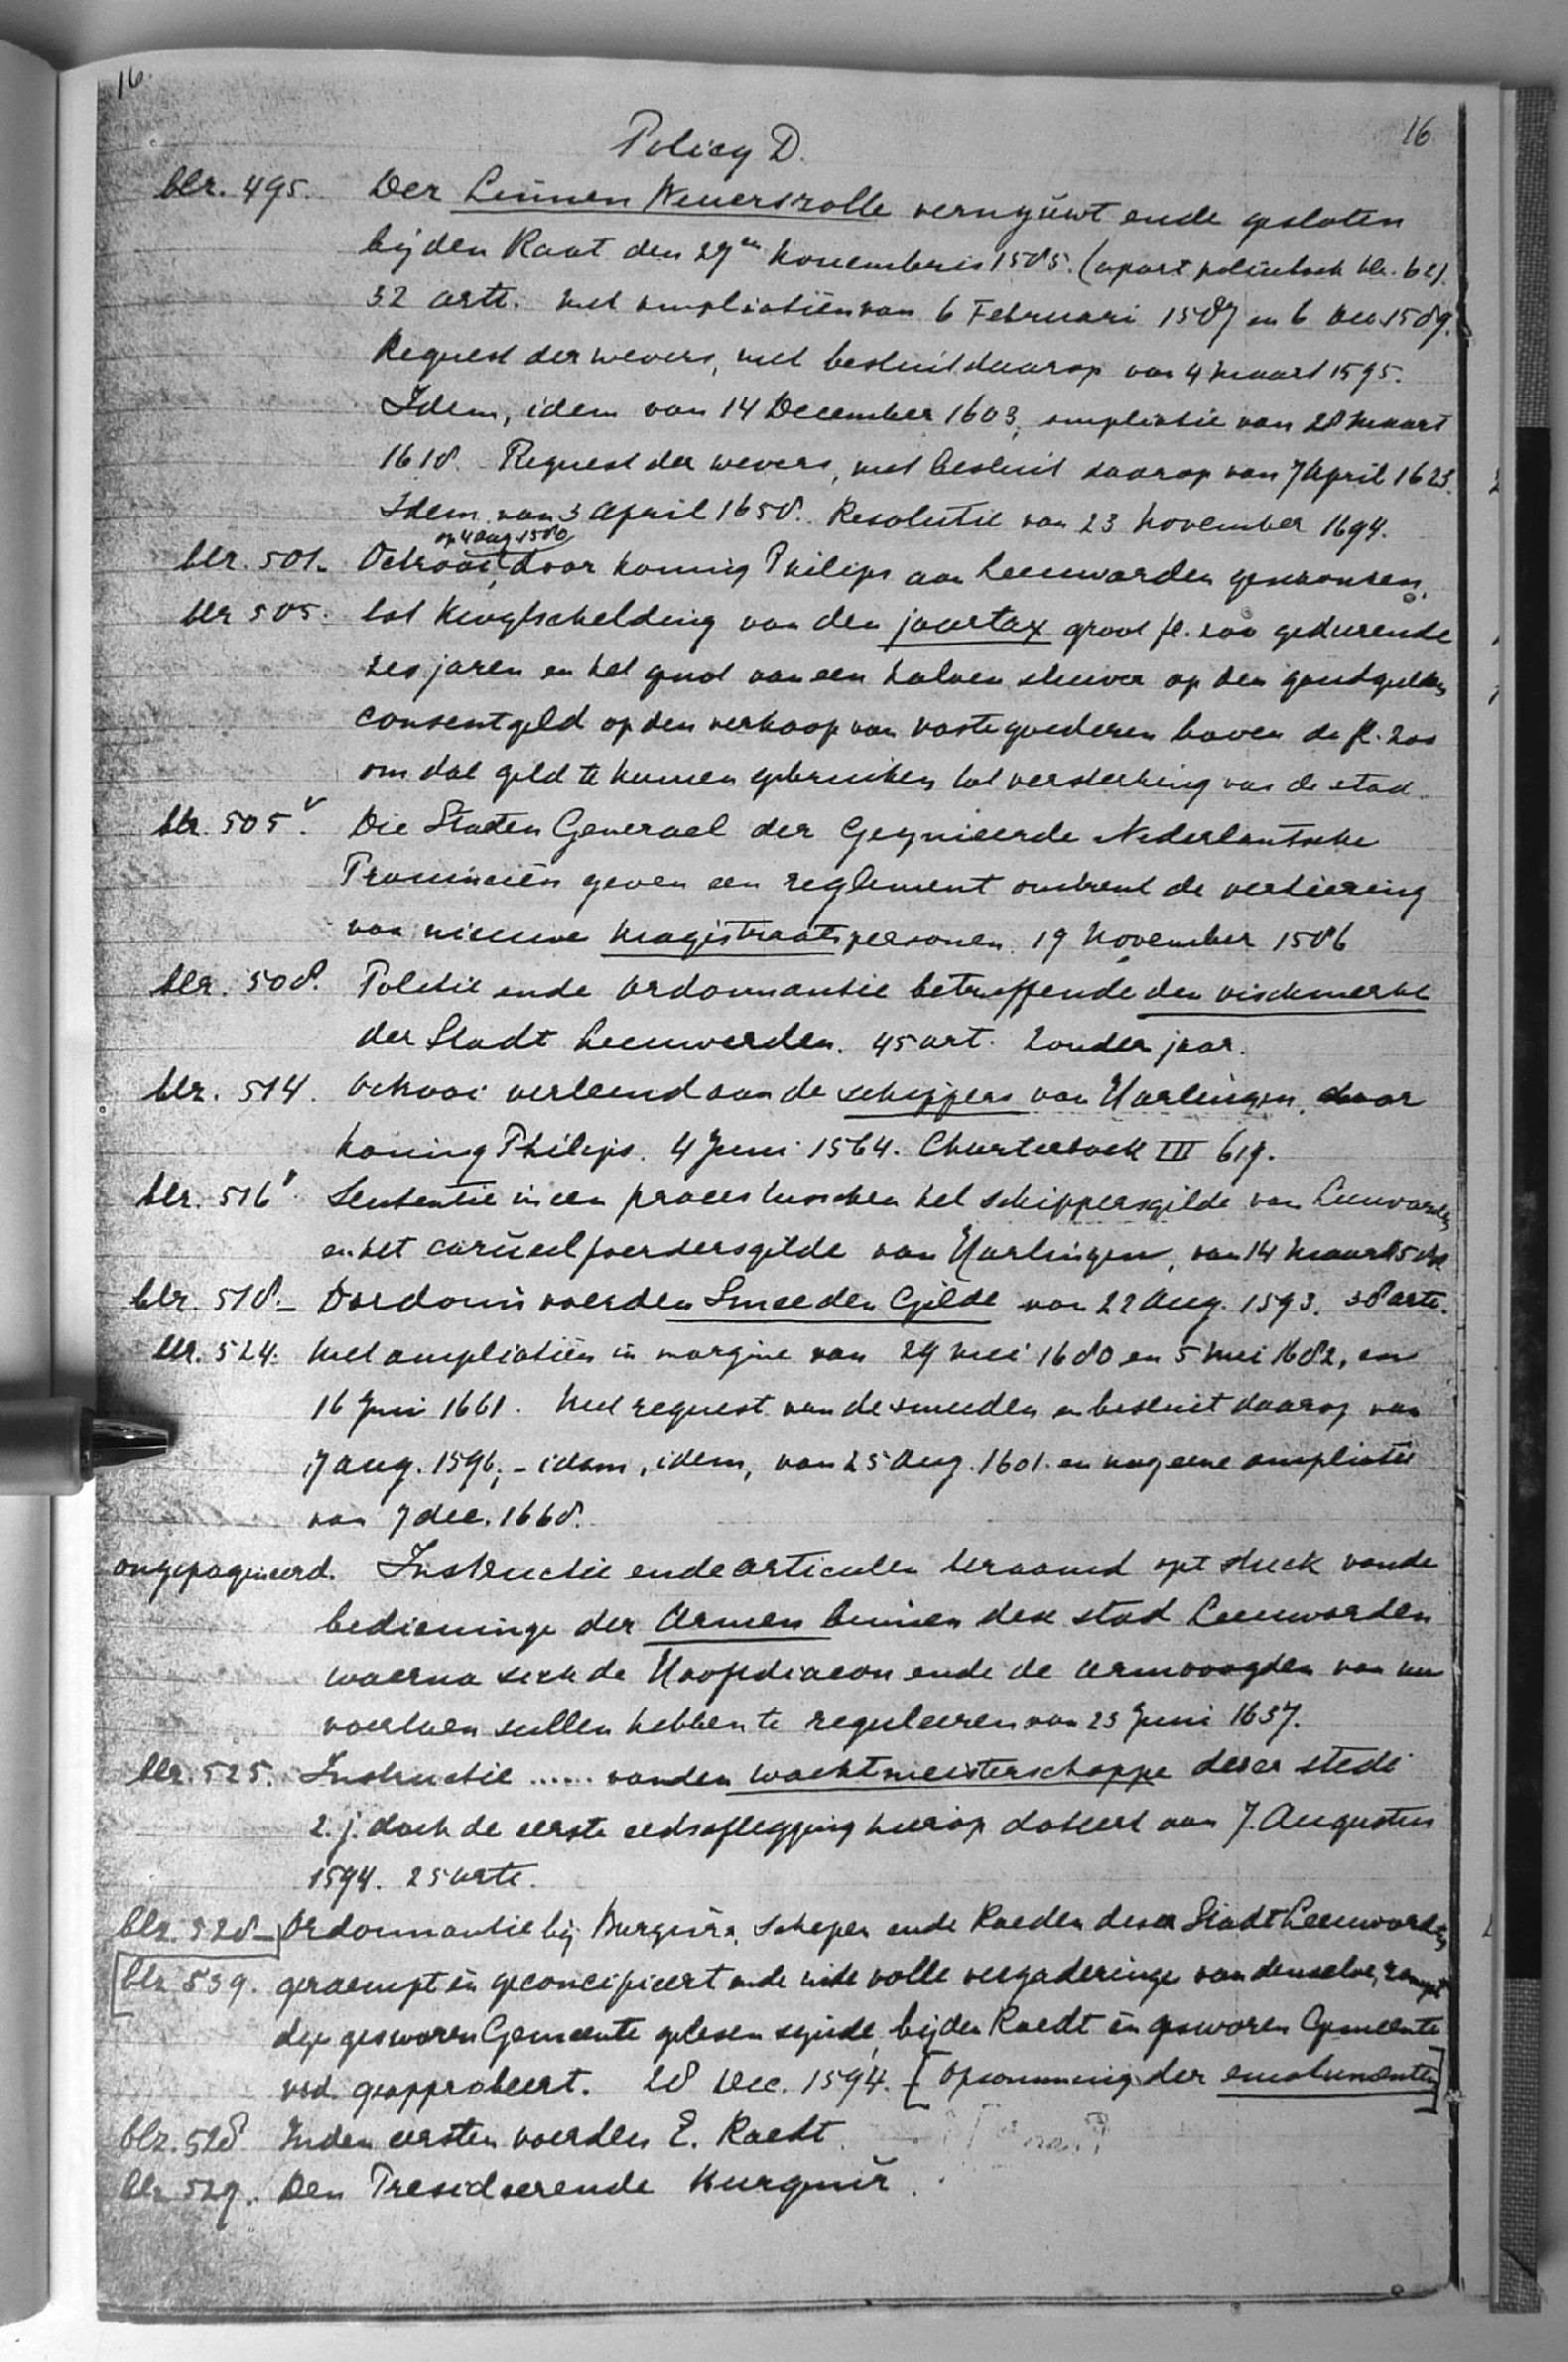 16.
16
Policy D.
blz. 495. Der Linnen Weuersrolle vernyúwt ende gesloten
bijden Raat den 29en Nouembris 1585. (apart politieboek blz. 62).
32 artt. met ampliatiën van 6 Februari 1587 en 6 Dec 1589.
Request der wevers, met besluit daarop van 4 Maart 1595.
Idem, idem van 14 December 1603, ampliatie van 28 Maart
1618. Request der wevers, met besluit daarop van 7 April 1623.
Idem van 3 April 1658. Resolutie van 23 November 1694.
op 4 Aug 1580
blz. 501- Octrooi, door Koning Philips aan Leeuwarden geschonken,
blz 505. tot kwijtschelding van den jaartax groot fl. 200 gedurende
zes jaren en het genot van een halven stuiver op den goudgulden
consentgeld op den verkoop van vaste goederen boven de fl. 200
om dat geld te kunnen gebruiken tot versterking van de stad.
blz. 505v. Die Staten Generael der Geunieerde Nederlantsche
Prouinciën geven een reglement omtrent de verkiezing
van nieuwe Magistraatspersonen. 19 November 1586
blz. 508. Politie ende ordonnantie betreffende den vischmerkt
der Stadt Leeuwerden. 45 art. Zonder jaar.
blz. 514. Octrooi verleend aan de schippers van Harlingen, door
Koning Philips. 4 Juni 1564. Charterboek III 619.
blz. 516v Sententie in een proces tusschen het schippersgilde van Leeuwarden
en het carueelfoerdersgilde van Harlingen, van 14 Maart
blz. 518- Dordonn voer den Smeeden Gilde van 22 Aug. 1593. 38 artt.
blz. 524. Met ampliatiën in margine van 29 Mei 1680 en 5 Mei 1682, en
16 Juni 1661. Met request van de smeeden en besluit daarop van
17 Aug. 1596, - idem, idem, van 25 Aug. 1601. en nog eene ampliatie
van 7 dec. 1668.
ongepagineerd. Instructie ende articulen beraamd opt stuck vande
bedieninge der Armen binnen dese stad Leeuwarden
waerna sich de Hoofdiacon ende de armvoogden van nu
voertaen sullen hebben te reguleeren van 23 Juni 1637.
blz. 525. Instructie ...... vanden wachtmeisterschappe deser stede
z. j. doch de eerste eedsaflegging hierop dateert van 7 Augustus
1594. 25 artt.
blz. 528- Ordonnantie bij Burgmrn, Schepen ende Raeden deser Stadt Leeuwarden
blz 539. geraempt en geconcipieert ende inde volle vergaderinge van denselve, sampt
die gesworen Gemeente gelesen synde, bijden Raedt en gesworen Gemeente
vsd. geapprobeert. 28 Dec. 1594. [Opsomming der emolumenten]
blz. 528 Inden eersten voer den E. Raedt.
blz 529. Den Presideerende Burgmr.